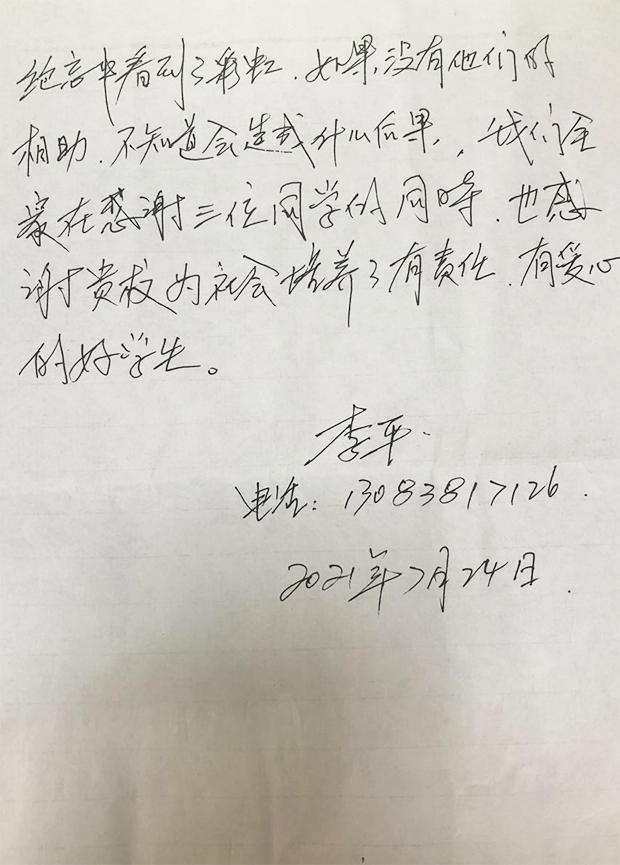 绝意中看到了彩虹.如果没有他们的
相助.不知道会造成什么后果,我们全
家在感谢三位同学的同时.也感
谢贵校为社会培养了有责任.有爱心
的好学生。
李平.
电话:13083817126.
2021年7月24日.